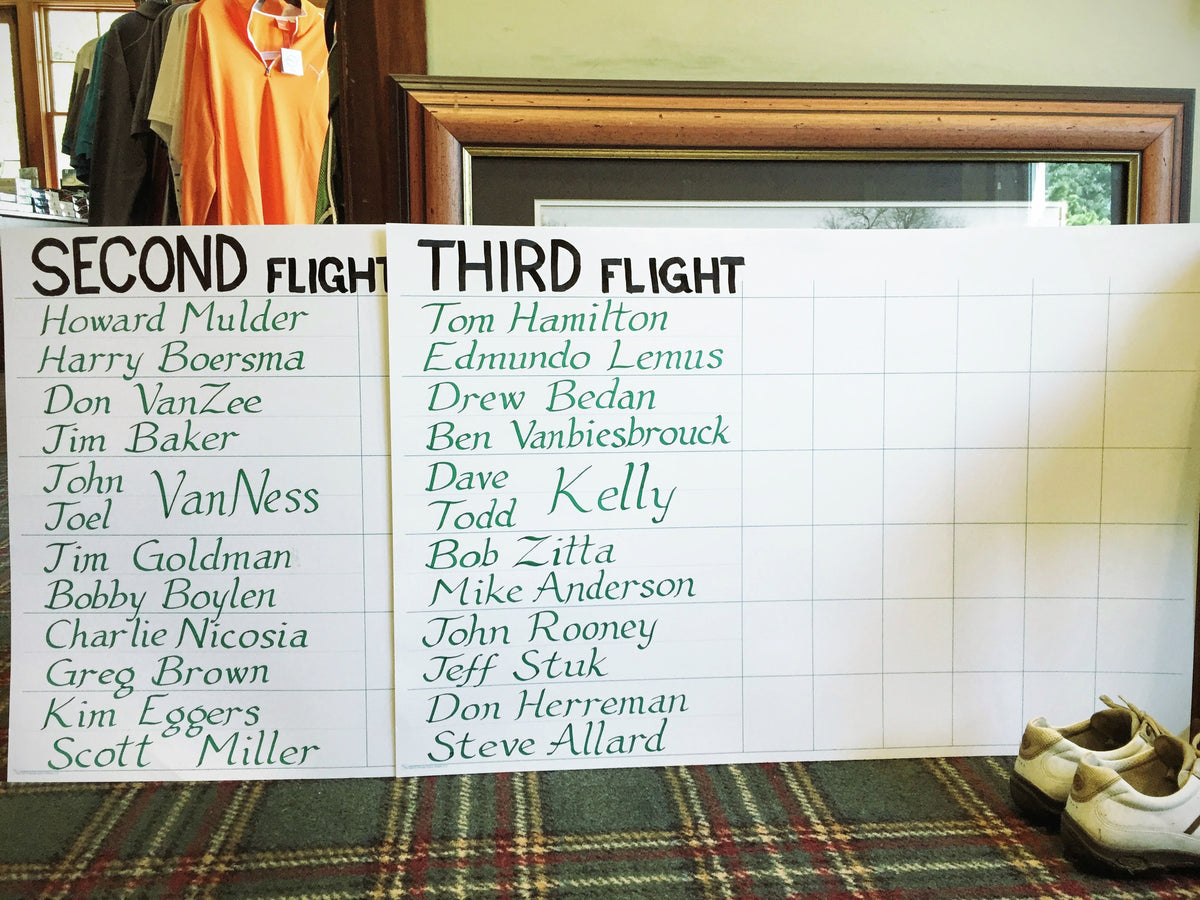 SECOND FLIGHT
Howard Mulder
Harry Boersma
Don VanZee
Jim Baker
John
Joel
VanNess
Jim Goldman
Bobby Boylen
Charlie Nicosia
Greg Brown
Kim Eggers
Scott Miller
THIRD FLIGHT
Tom Hamilton
Edmundo Lemus
Drew Bedan
Ben Vanbiesbrouck
Dave
Todd
Kelly
Bob Zitta
Mike Anderson
John Rooney
Jeff Stuk
Don Herreman
Steve Allard